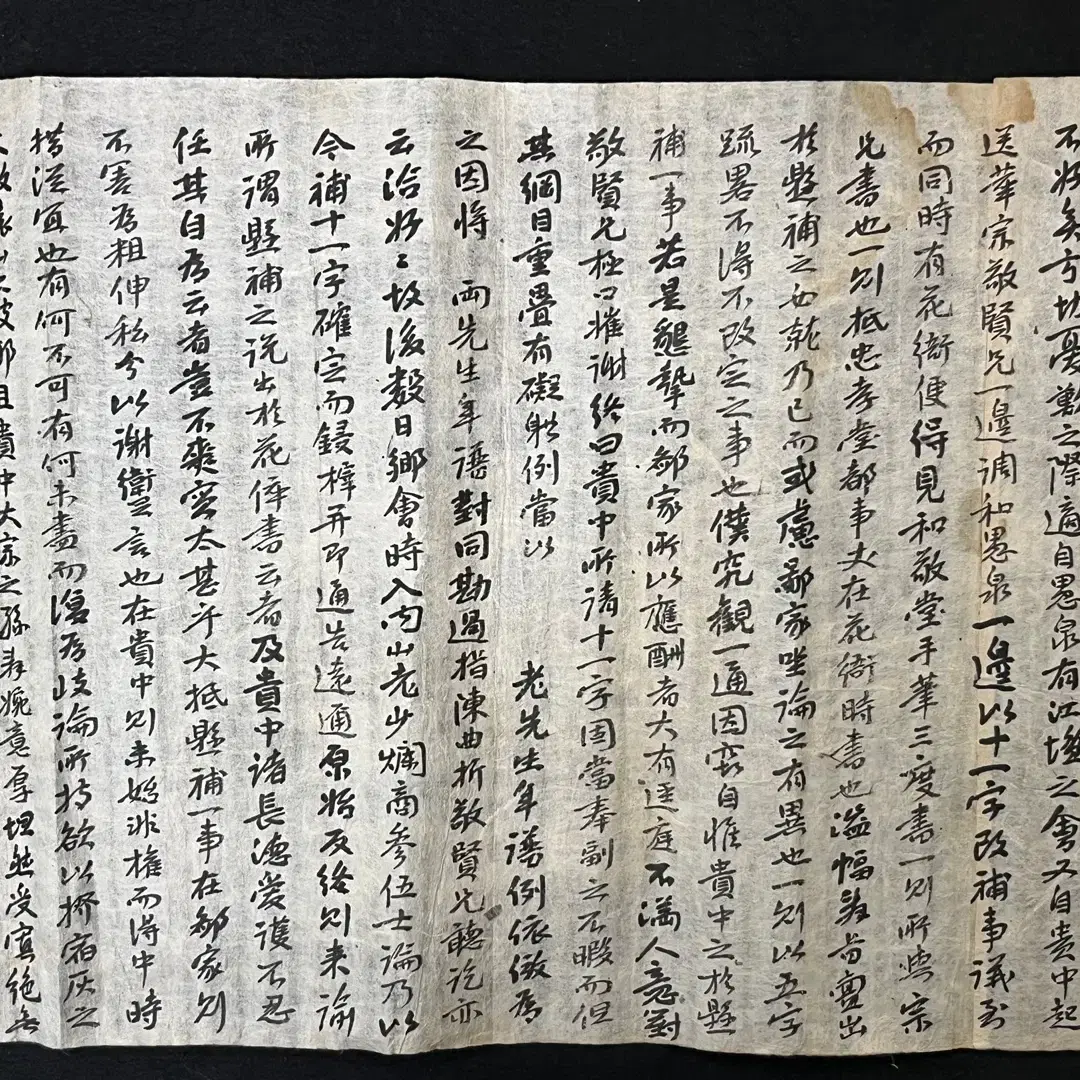 不好矣方切憂歎之際適自愚泉有江墩之會又自貴中起
送華宗敬賢兄一邊調和愚泉一邊以十一字改補事議到
而同時有花衙便得見和敬堂手華三度書一則所與宗
兄書也一則抵忠孝堂都事丈在花衙時書也溢幅
於懸補之而已而或慮鄙家崖論之有異也一則以五字
疏畧不得不改定之事也僕究觀一通因竊自惟貴中之於懸
補一事若是懇摯而鄙家所以應酬者大有逕庭不滿人意對
敬賢兄極口摧謝終曰貴中所請十一字固當奉副之不暇而但
其綱目重疊有礙躰例當以 老先生年譜例依倣爲
之因將 兩先生年譜對同勘過指陳曲折敬賢兄聽訖亦
云洽好好故後數日鄉會時入內山老少爛商參伍士論乃以
今補十一字確定而鋟榟幷卽通告遠通原始反終則來諭
所謂懸補之說出於花倅書云者及貴中諸長德愛護不忍
任其自爲云者豈不爽實太甚乎大抵懸補一事在鄙家則
不害爲粗伸私分以謝衛言也在貴中則未始非權而得中時
措從宜也有何不可有何未盡而復爲歧論所持欲以擠宿灰之
彼鄙且貴中大宗之孫意厚坦然受寘絶無